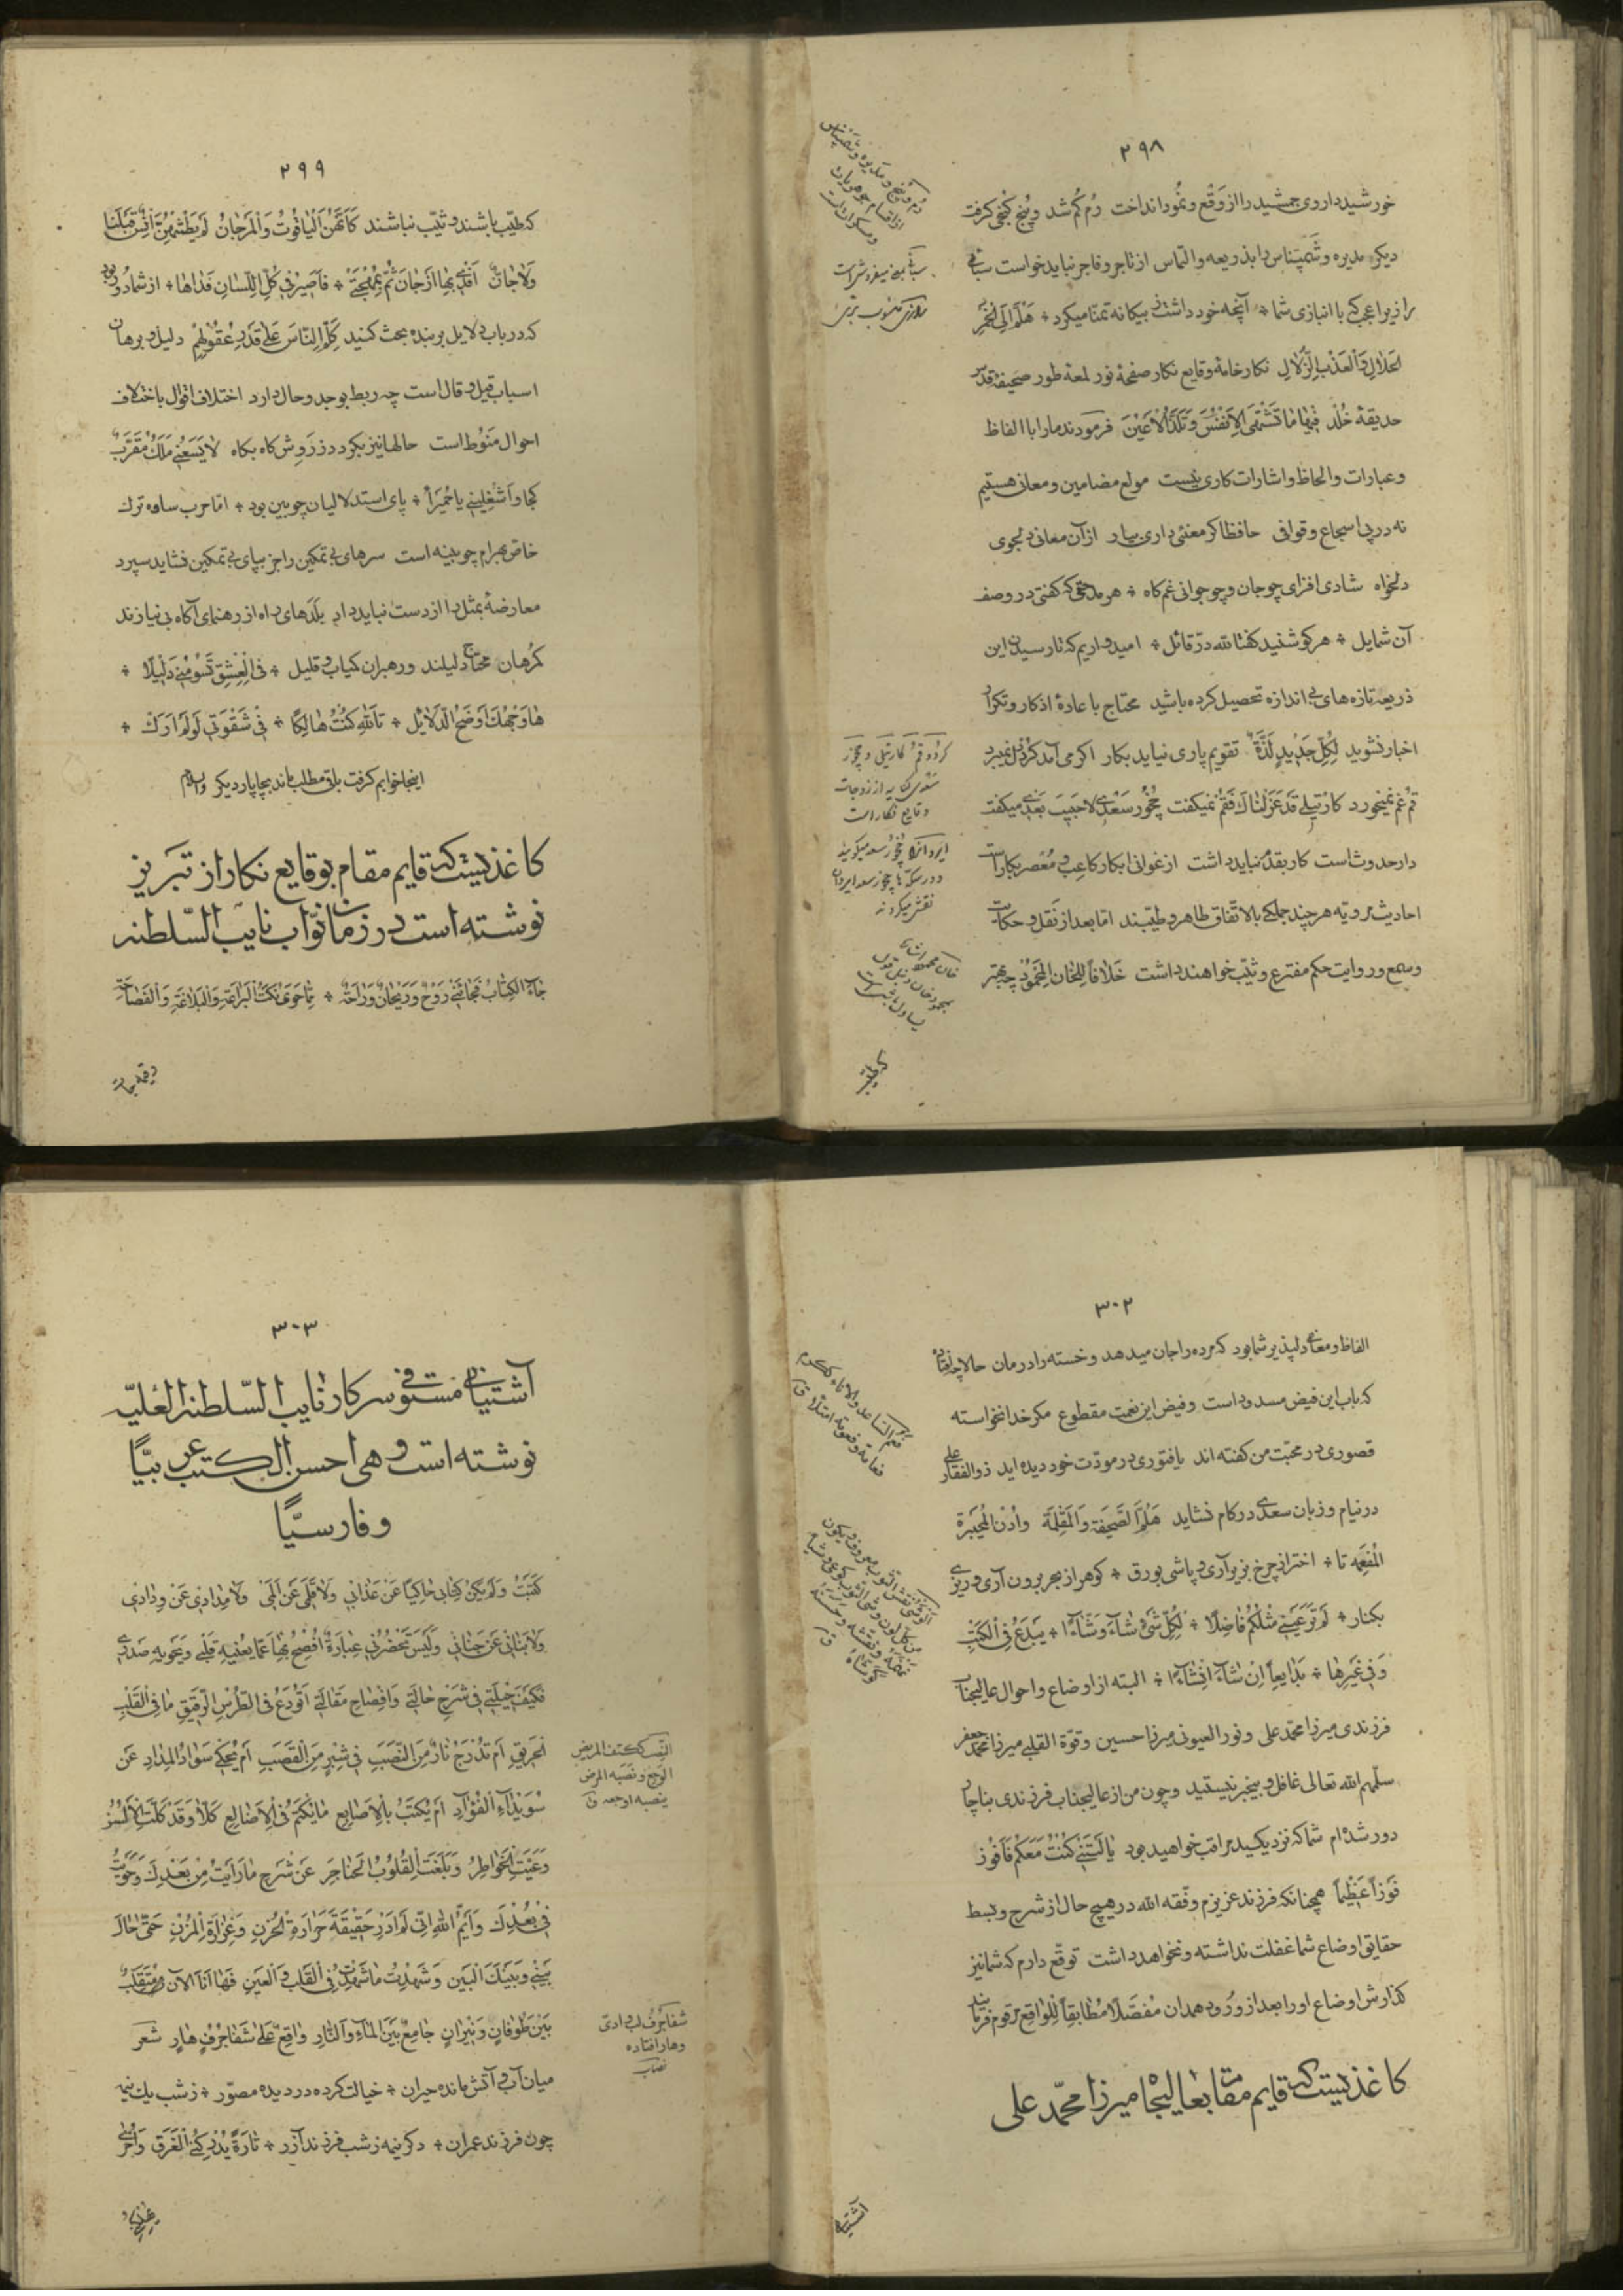 ٢٩٨
خورشید داروی جمشید را از وقع و نمود انداخت دُم کُم شد و پنج کنجی گرفت
دیگر مدیره و شمپناس را بذریعه و التماس از تاجر و فاجر نباید خواست
را زیراعجب که با انبازی شما + آنچه خود داشت ز بیکانه تمنّا میکرد + هَلُمَّ اِلَی الخَمرِ
الحَلالِ وَالعَذبِ الزُّلالِ نکار خامهٔ وقایع نکار صفحهٔ نور لمعهٔ طور صحیفهٔ قدس
حدیقهٔ خُلد فیهٰا مٰا تَشتَهی الاَنفُسُ وَ تَلَذُّ الاَعیُنَ فرمودند ما را با الفاظ
و عبارات و الحاظ و اشارات کاری نیست مولع مضامین و معانی هستیم
نه در پی اسجاع و قوافی حافظا اکر معنئ داری بیار از آن معانی دلجوی
دلخواه شادی افزای چو جان و چو جوانی غم کاه + هر مدحتی که کفتی در وصف
آن شمایل + هر کو شنید کفتا لله درّ قائل + امید داریم که تا رسیدن این
ذریعه تازه های بی اندازه تحصیل کرده باشید محتاج باعادهٔ اذکار و تکرار
اخبار نشوید لِکُلِّ جَدیدٍ لَذَّةٌ تقویم پاری نیاید بکار اکر می آمد کُرد دل نمیبرد
قُم غم نمیخورد کارتیلی قَد عَزَلنٰاکَ فَقُم نمیکفت چُخُور سَعدی لا حَبیبَ بَعدی میکفت
دار حدوث است کار بقدم نباید داشت از غوانی ابکار کاعب و مُعصر بکار است
احادیث مرویّه هر چند جملکی بالاتّفاق طاهر و طیّبند امّا بعد از نقل و حکایت
و سمع و روایت حکم مفترع و ثیّب خواهند داشت خلافاً للخان المحمود چه بهتر
دُم و پنج و مدیره و شمپناس
از اقسام جوهریات
و مسکرات است
سباتی بمعنی میفروش است
کُرد و قُم و کارتیلی و چخور
سَعدی کنایه از زوجات
وقایع نکار است
ایروان را چخور سعد میکویند
و در سکّه ها چخور سعد ایروان
نقش میکردند
که طیّب
٢٩٩
که طیّب باشند و ثیّب نباشند کَاَنَّهُنَّ الیٰاقُوتُ وَالمَرجٰانُ لَم یَطمِثهُنَّ اِنسٌ قَبلَنٰا
وَلاٰ جٰانٌّ اَفدی بِهٰا اَرجٰانَ ثُمَّ بِمُهجَتی + فَاَصیرُ فی کُلِّ اللِّسٰانِ فَدٰاهٰا + از شما دور بود
که در باب دلایل بر بنده بحث کنید کَلِّمِ النّاسَ عَلٰی قَدرِ عُقُولِهِم دلیل و برهان
اسباب قیل و قال است چه ربط بوجد و حال دارد اختلاف اقوال باختلاف
احوال منوط است حالها نیز بکردد ز روش کاه بکاه لا یَسَعُنی مَلَکٌ مُقَرَّبٌ
کجا و اَشغِلینی یا حُمَیراء + پای استدلالیان چوبین بود + امّا حرب ساوه ترک
خاصّ بهرام چوبینه است سرهای بی تمکین را جز بپای بی تمکین نشاید سپرد
معارضهٔ بمثل را از دست نباید داد بلدهای راه از رهنمای آکاه بی نیازند
کمرهان محتاج دلیلند و رهبران کمیاب و قلیل + فی العِشقِ تَسُومُنی دَلیلاً +
هٰا وَجهُکَ اَوضَحُ الدَّلاٰئل + تَاللّهِ کُنتُ هٰالِکاً + فی شَقوَتی لَو لَم اَرَک +
اینجا خوابم کرفت باقی مطلب ماند بچاپار دیکر والسّلام
کاغذیست که قایم مقام بوقایع نکار از تبریز
نوشته است در زمان نوّاب نایب السّلطنه
جٰاءَ الکِتٰابُ فَجٰائَنی رَوحٌ وَ رَیحٰانٌ وَ رٰاحَة + مِمّا حَوی نُکَتُ البَرٰاعَةِ وَالبَلاٰغَةِ وَالفَصٰاحَة
٣٠٢
الفاظ و معانی دلپذیر شما بود که مرده را جان میدهد و خسته را درمان حالا چه افتاد
که باب این فیض مسدود است و فیض این نعمت مقطوع مکر خدا نخواسته
قصوری در محبّت من کفته اند یا فتوری در مودّت خود دیده اید ذوالفقار علی
در نیام و زبان سعدی در کام نشاید هَلُمَّ الصَّحیفَة وَالمَقلَمَة وَادنُ المِحبَرَة
المُفعَمه تا + اختر از چرخ بزیر آری و پاشی بورق + کوهر از بحر برون آری و ریزی
بکنار + لَم تَرَ عَینی مِثلَکُم فٰاضِلاً + لِکُلِّ شَیءٍ شٰاءَ وَشّٰاءا + یُبدِعُ فی الکُتبِ
وَ فی غَیرِهٰا + بَدٰایِعاً اِن شٰاءَ اِنشٰاءا + البته از اوضاع و احوال عالیجناب
فرزندی میرزا محمّد علی و نور العیونی میرزا حسین و قوّة القلبی میرزا محمّد جعفر
سلّمهم الله تعالی غافل و بیخبر نیستید و چون من از عالیجناب فرزندی بناچار
دور شده ام شما که نزدیکید مراقب خواهید بود یا لَیتَنی کُنتُ مَعَکُم فَاَفُوزَ
فَوزاً عَظیماً همچنانکه فرزند عزیزم وفّقه الله در هیچ حال از شرح و بسط
حقایق اوضاع شما غفلت نداشته و نخواهد داشت توقّع دارم که شما نیز
کذارش اوضاع او را بعد از ورود همدان مُفصّلاً مُطابِقاً لِلواقِع مرقوم فرمائید
کاغذیست که قایم مقام بعالیجاه میرزا محمّد علی
آشتیانی
٣٠٣
آشتیانی مستوفی سرکار نایب السّلطنه العُلیّه
نوشته است و هی احسن الکتب عربیّاً
و فارسیّاً
کَتَبتُ وَلَم یَکُن کِتٰابی حٰاکِیاً عَن عَذٰابی وَلاٰ قَلَمی عَن اَلَمی وَلاٰ مِدٰادی عَن وِدٰادی
وَلاٰ بَنٰانی عَن جَنٰانی وَلَیسَ تَحضُرُنی عِبٰارَةٌ اُفصِحُ بِهٰا عَمّا یُعنیهِ قَلبی وَ یَحویهِ صَدری
فَکَیفَ حیلَتی فی شَرحِ حٰالَتی وَ اِفصٰاحِ مَقٰالَتی اَیُودَعُ فی الطِّرسِ الرَّقیقِ مٰا فی القَلبِ
الحَریقِ اَم تُدرَجُ نٰارٌ مِنَ النَّصَبِ فی شِبرٍ مِنَ القَصَبِ اَم یَحکی سَوٰادُ المِدٰادِ عَن
سُوَیدٰاءِ الفُؤٰادِ اَم یُکتَبُ بِالاَصٰابِعِ مٰا یُکتَمُ فی الاَضٰالِعِ کَلّا وَ قَد کَلَّتِ الاَلسُنُ
وَ عَیَتِ الخَوٰاطِرُ وَ بَلَغَتِ القُلُوبُ الحَنٰاجِرَ عَن شَرحِ مٰا رَاَیتُ مِن بَعدِکَ وَ حَوَیتُ
فی بُعدِکَ وَ اَیمُ اللهِ اِنّی لَم اَدرِ حَقیقَةَ حَرٰارَةِ الحُزنِ وَ غِزٰارَةِ المُزنِ حَتّی حٰالَ
بَینی وَ بَینَکَ البَین وَ شَهِدتُ مٰا شَهِدتُ فی القَلبِ وَ العَینِ فَهٰا اَنَا الآنَ مُتَقَلِّبٌ
بَینَ طُوفٰانٍ وَ نیرٰانٍ جٰامِعٌ بَینَ المٰاءِ وَ النّارِ وٰاقِعٌ عَلٰی شَفٰا جُرُفٍ هٰارٍ شعر
میان آب و آتش مانده حیران + خیالت کرده در دیده مصوّر + ز شب یک نیمه
چون فرزند عمران + دکر نیمه ز شب فرزند آزر + تٰارَةً یُدرِکُنی الغَرَق وَ اُخری
النّصب ککتف المریض
الوجع و نصبه المرض
ینصبه اوجعه ق
شفا جرف لب وادی
و هار افتاده
نصاب